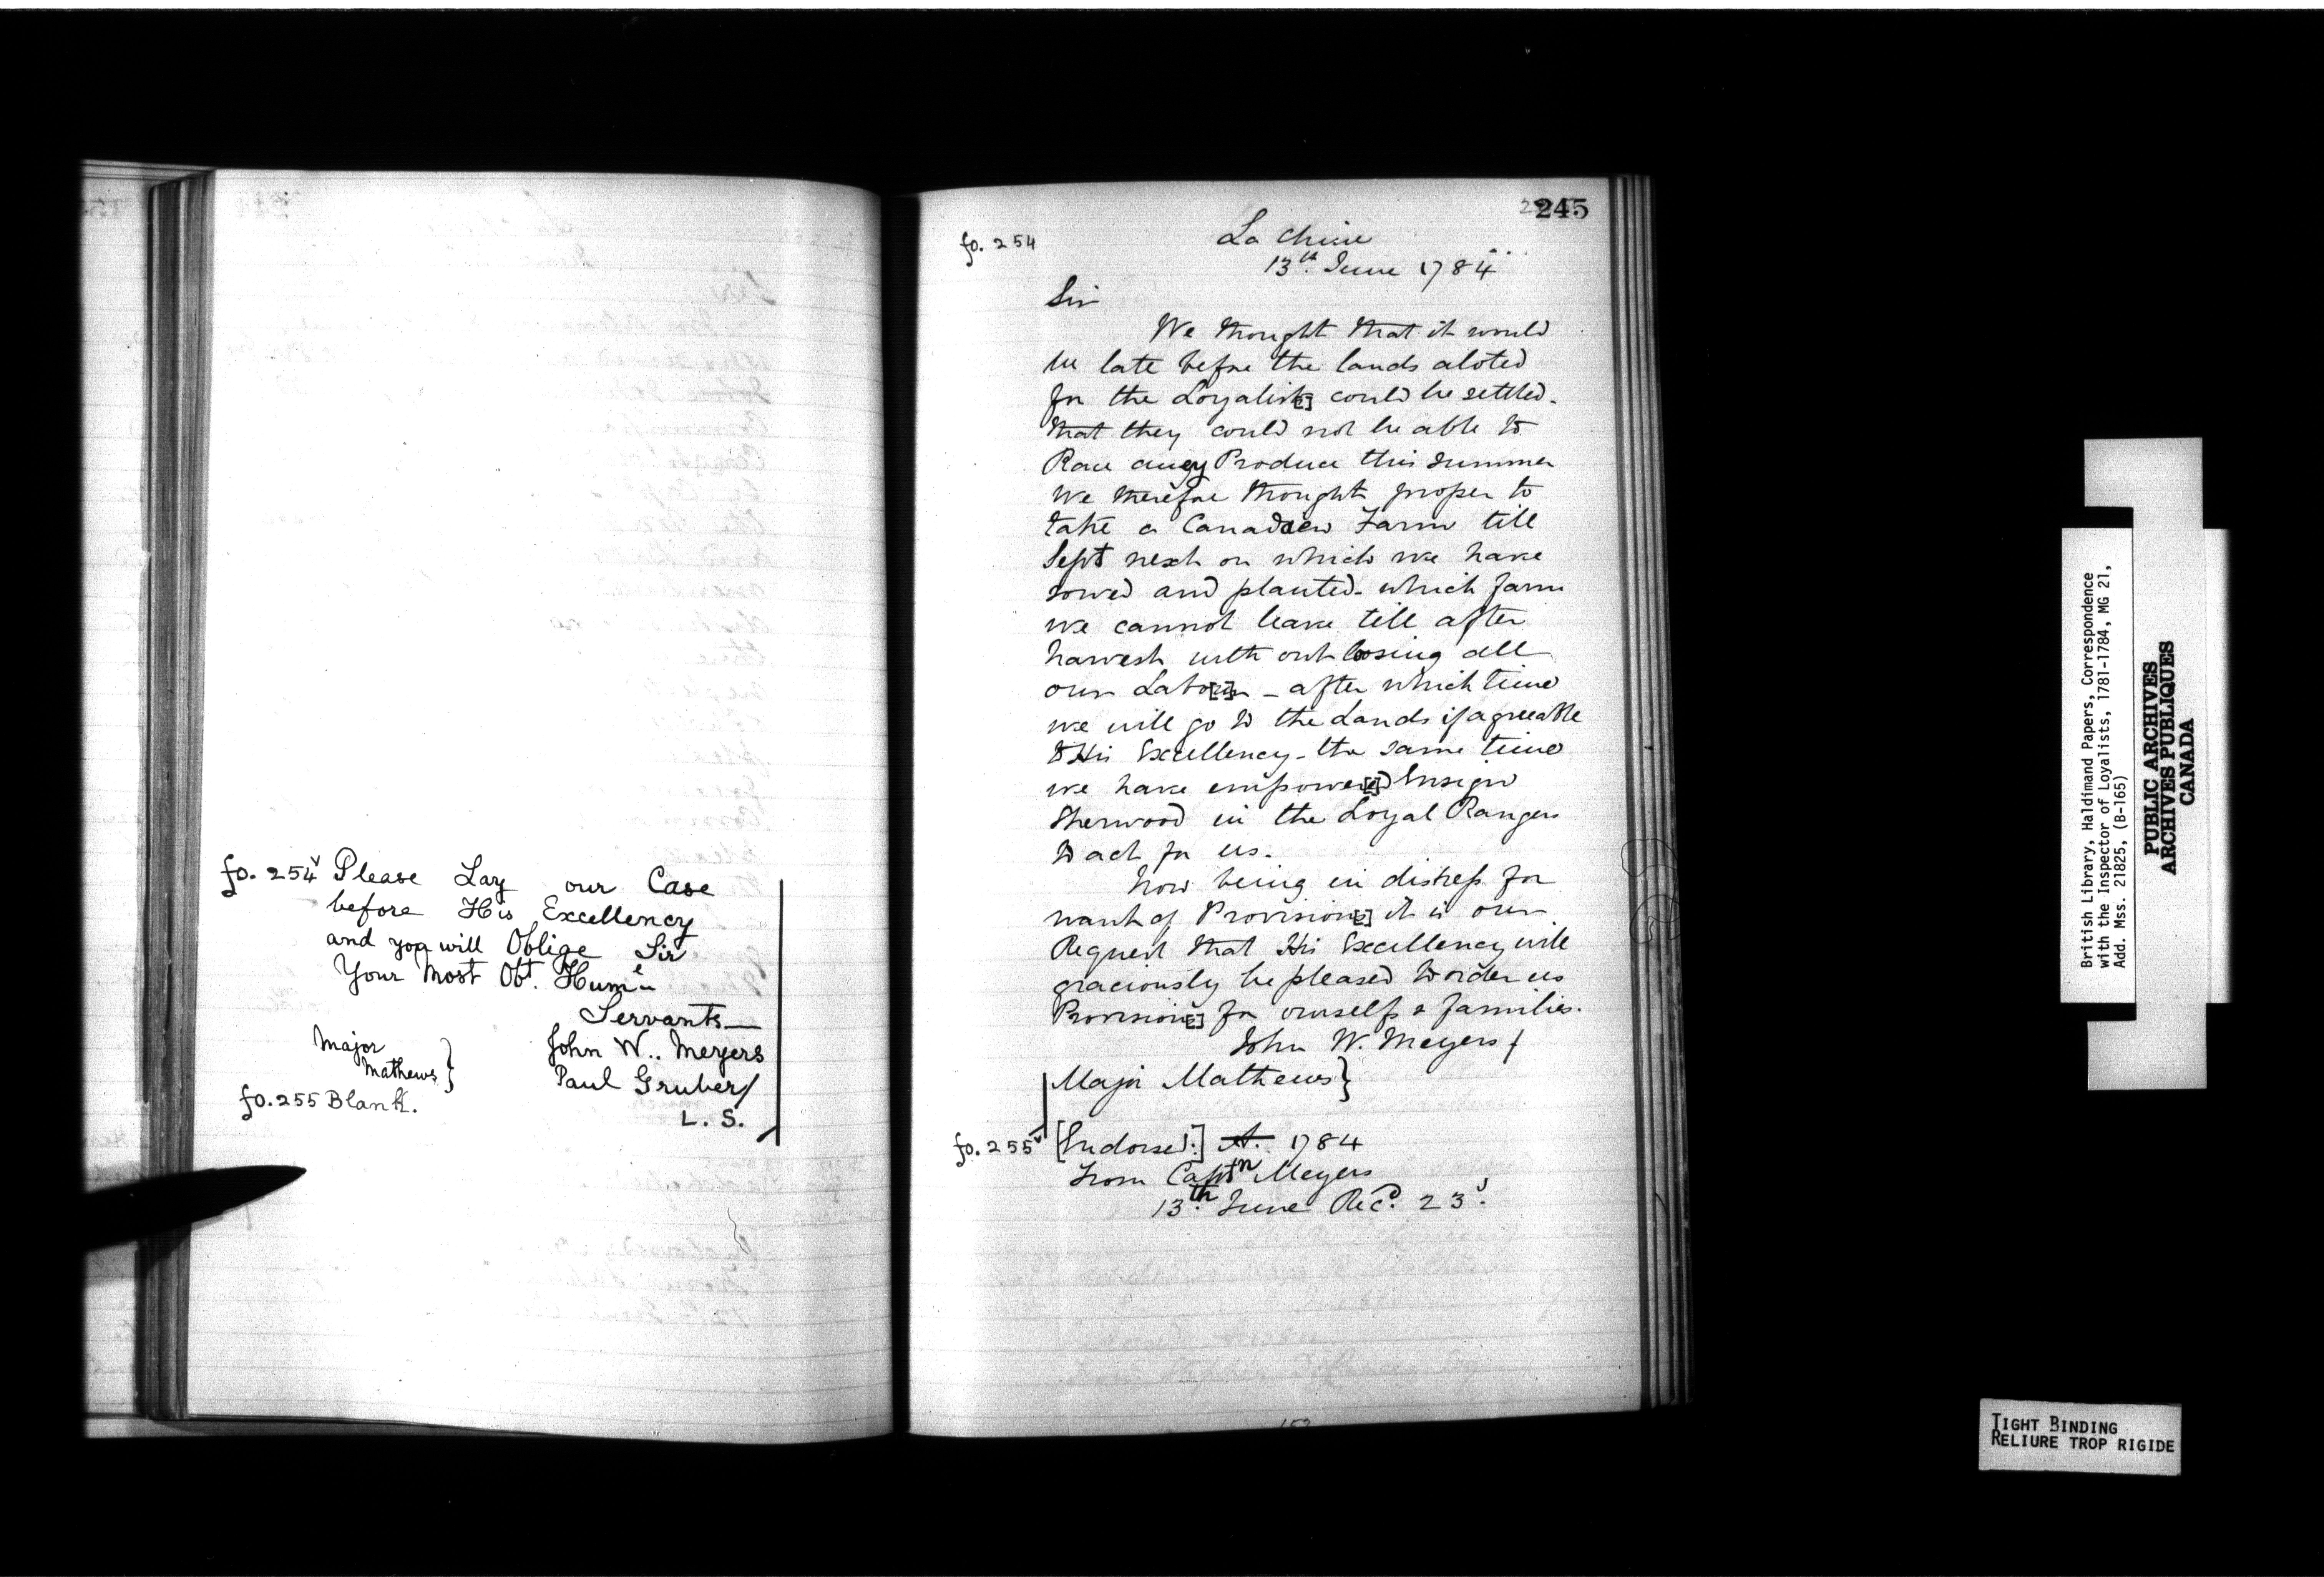 fo. 254v Please Lay our Case
before His Excellency
and you will Oblige Sir
Your Most Obt. Humle
Servants—
Major
Mathews }
John W. Meyers
Paul Gruber/
L. S.
fo. 255 Blank.
245
fo. 254
La Chine
13th. June 1784
Sir
We thought that it would
be late before the lands aloted
for the Loyalist[s] could be settled.
that they could not be able to
Rase aney Produce this summer
We therefore thought proper to
take a Canadien Farm till
Sept next on which we have
sowed and planted - which farm
we cannot leave till after
harvest with out loosing all
our Labo[u]r - after which time
we will go to the Lands if agreeable
to His Excellency - the same time
we have empower[e]d Ensign
Sherwood in the Loyal Rangers
to act for us.
Now being in distress for
want of Provision[s] it is our
Request that His Excellency will
graciously be pleased to order us
Provision[s] for ourselfs & families.
John W. Meyers/
Major Mathews}
fo. 255v [Endorsed:] A. 1784
From Captn Meyers
13th. June Recd. 23d.
152
British Library, Haldimand Papers, Correspondence
with the Inspector of Loyalists, 1781-1784, MG 21,
Add. Mss. 21825, (B-165)
PUBLIC ARCHIVES
ARCHIVES PUBLIQUES
CANADA
TIGHT BINDING
RELIURE TROP RIGIDE